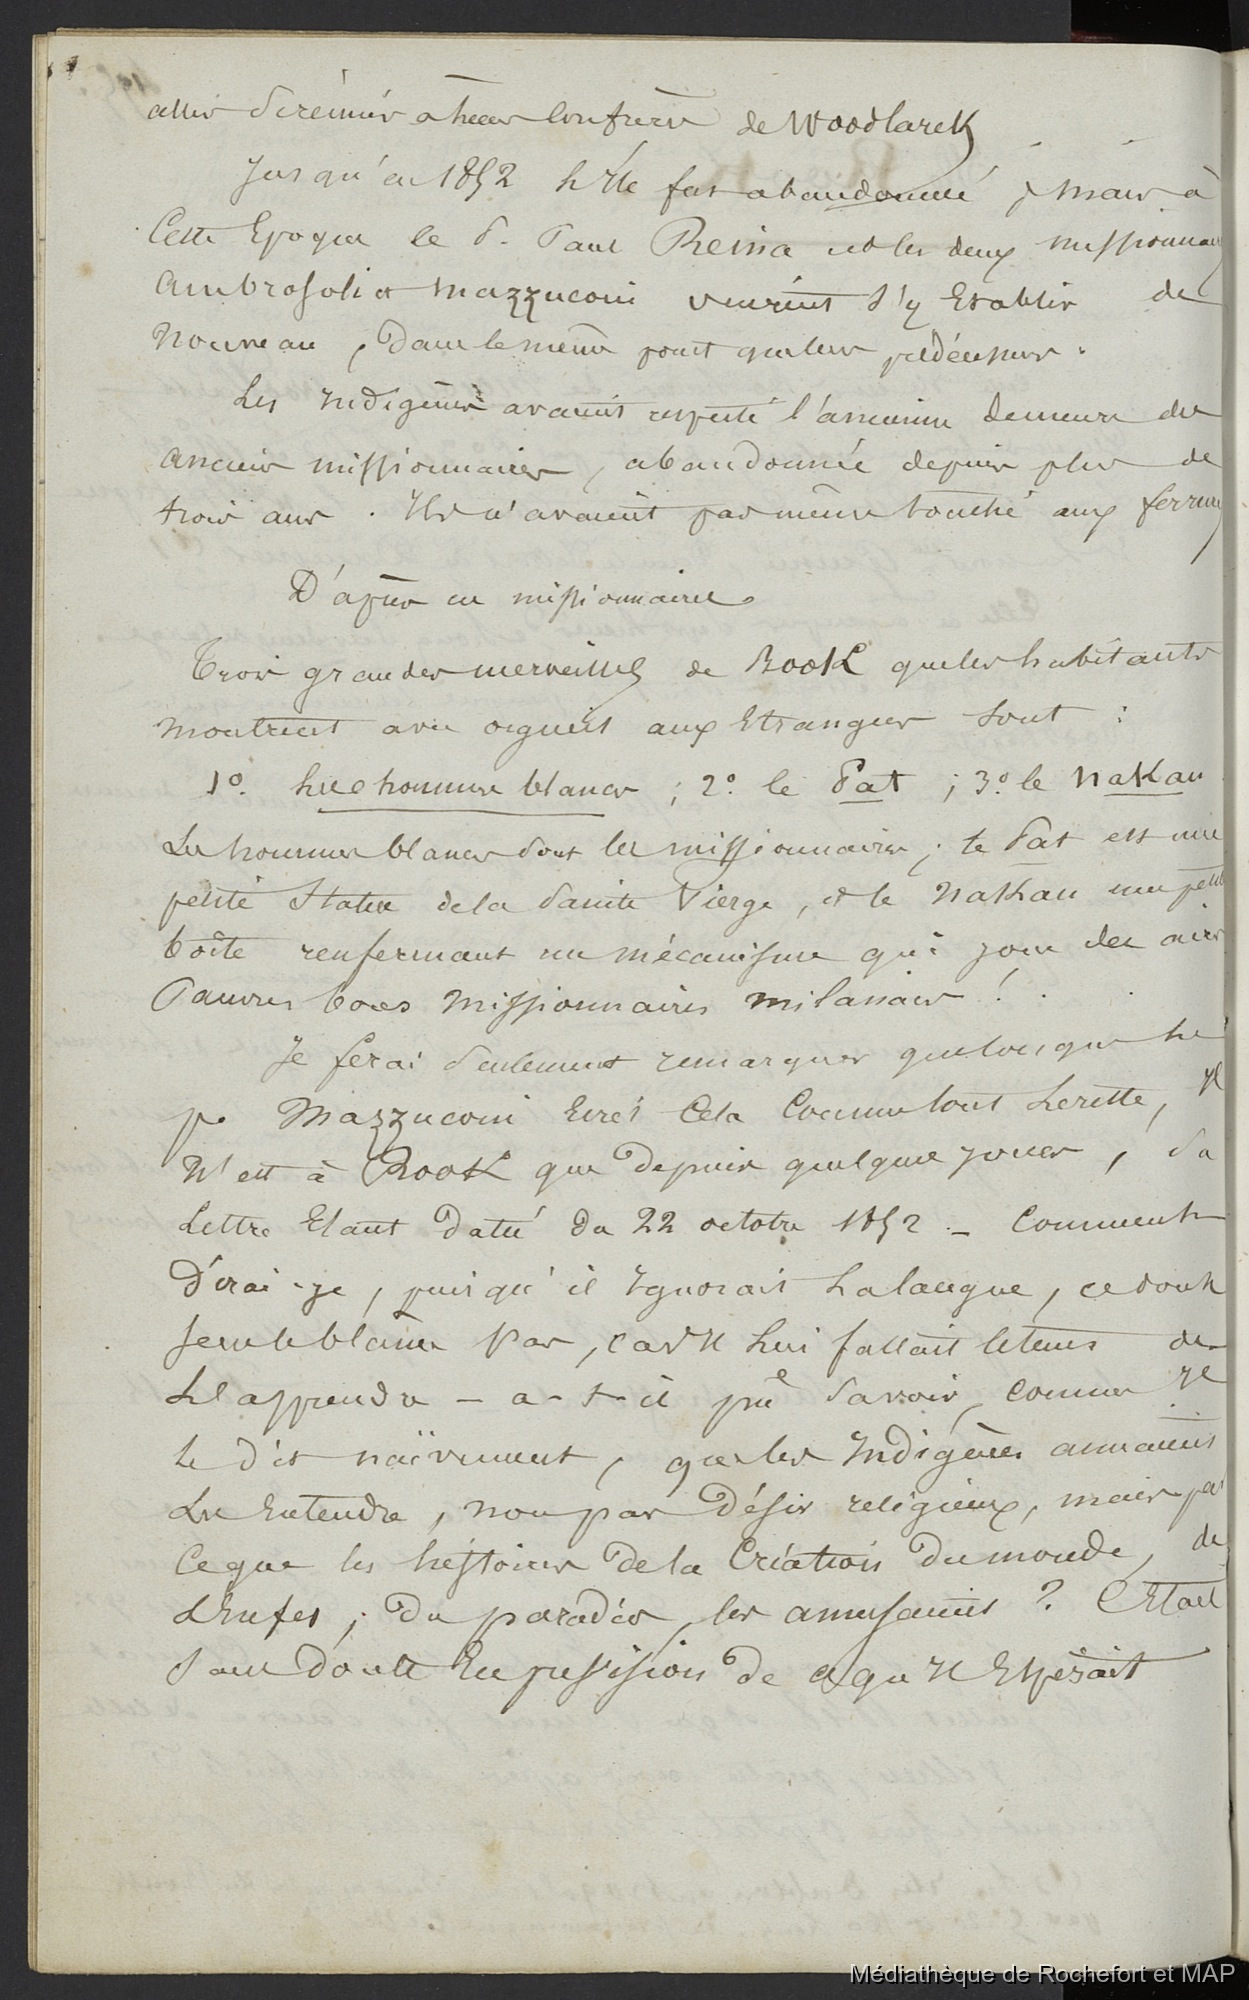 aller se réunir à leurs confrères de Woodlarck
Jusqu'en 1852 l'Ile fut abandonnée, mais à
Cette Epoque le P. Paul Reina et les deux missionnair
Ambrosoli et Mazzuconi vinrent s'y Etablir de
Nouveau, dans le même point que leurs prédécesseurs.
Les Indigènes avaient respecté l'ancienne demeure des
anciens missionnaires, abandonnée depuis plus de
trois ans. Ils n'avaient pas même touché aux ferrures
D'après ces missionnaires
Trois grandes merveilles de Rook que les habitants
montrent avec orgueil aux Etrangers sont :
1o. Les hommes blancs ; 2o. le Pat ; 3o. le Nakan
Les hommes blancs sont les missionnaires ; le Pat est une
petite Statue de la Sainte Vierge, et le Nakan une petite
boîte renfermant un mécanisme qui joue des airs
Pauvres bons Missionnaires milanais !
Je ferai seulement remarquer que lorsque le
p. Mazzuconi Ecrit Cela Comme tout le reste, Il
N'est à Rook que depuis quelques jours, sa
Lettre Etant Datée du 22 octobre 1852 – Comment
Dirai-je, puisqu'il Ignorait La langue, ce dont
je ne le blâme Pas, car Il Lui fallait le temps de
L'apprendre – a-t-il pu Savoir, comme Il
Le dit naïvement, que les Indigènes aimaient
Les Entendre, non par Désir religieux, mais par
Ceque les histoires de la Création Du monde, de
L'Enfer, Du paradis, les amusaient ? C'Etait
Sans Doute En prévision de ce qu'Il Espérait
Médiathèque de Rochefort et MAP